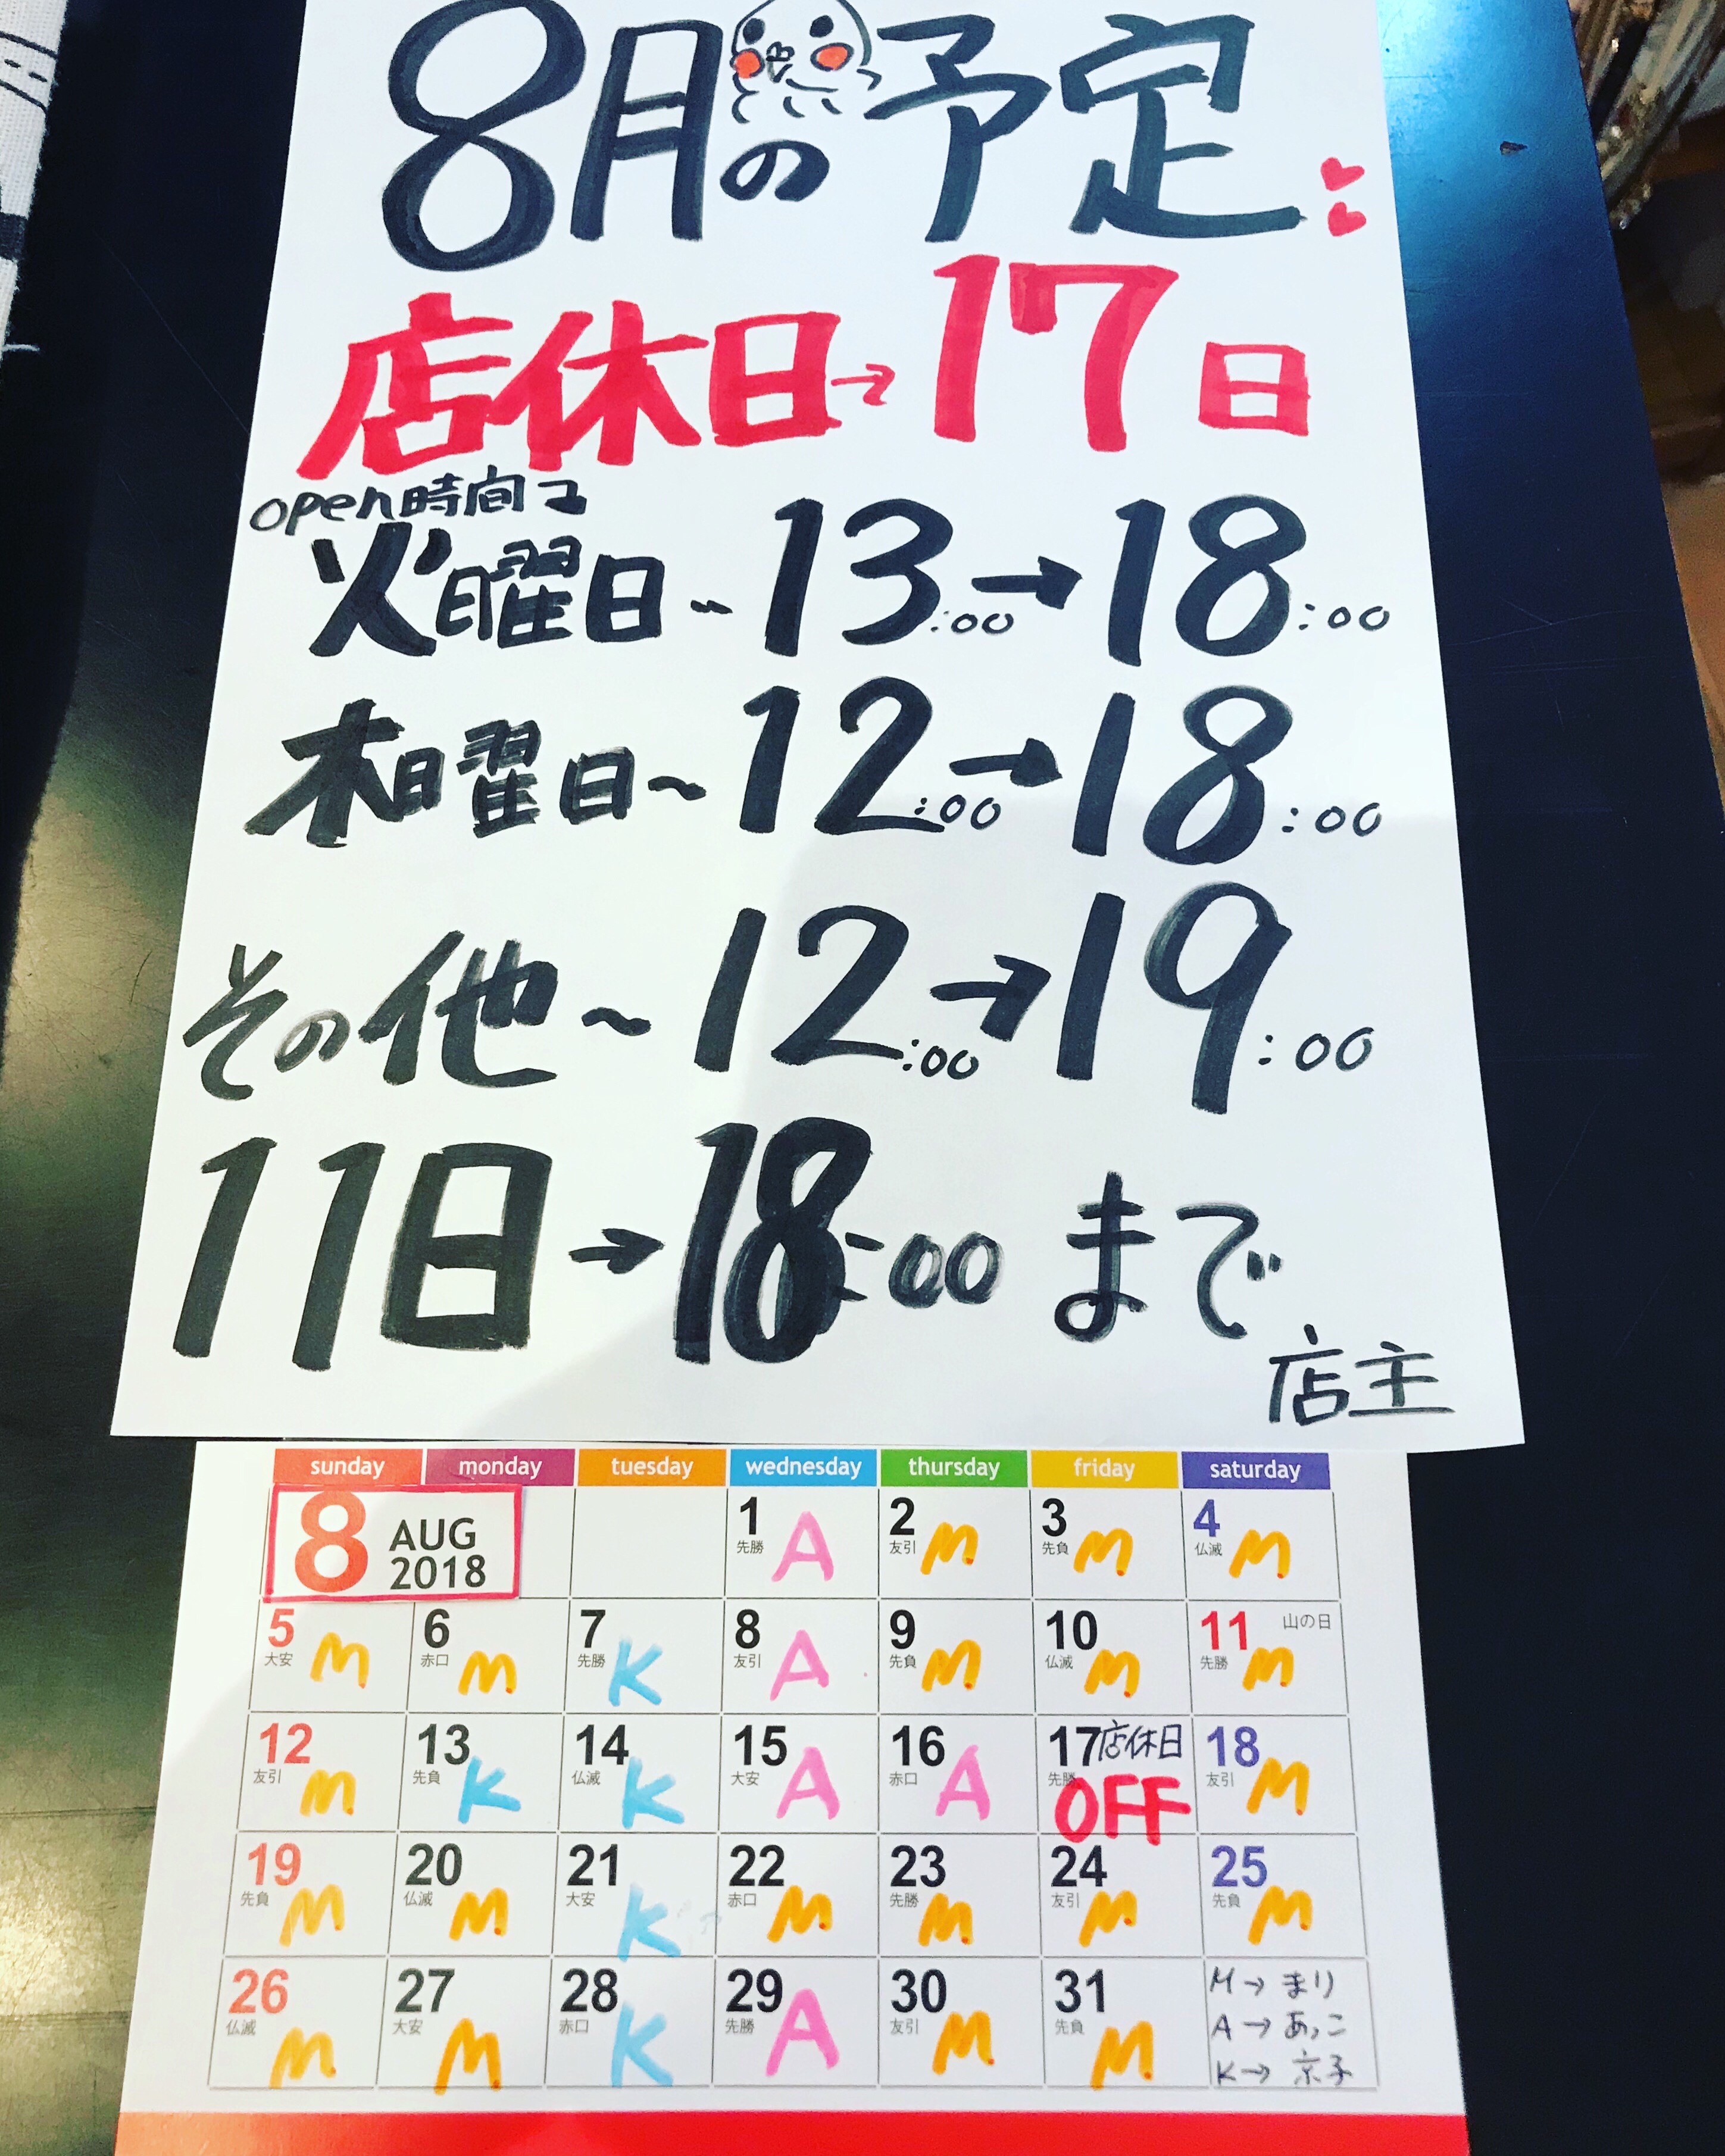 8月の予定
店休日→17日
open時間
火曜日~13:00→18:00
木曜日~12:00→18:00
その他~12:00→19:00
11日→18:00まで
店主
sunday monday tuesday wednesday thursday friday saturday
8 AUG 2018
1 先勝 A
2 友引 M
3 先負 M
4 仏滅 M
5 大安 M
6 赤口 M
7 先勝 K
8 友引 A
9 先負 M
10 仏滅 M
11 山の日 先勝 M
12 友引 M
13 先負 K
14 仏滅 K
15 大安 A
16 赤口 A
17 店休日 先勝 OFF
18 友引 M
19 先負 M
20 仏滅 M
21 大安 K
22 赤口 M
23 先勝 M
24 友引 M
25 先負 M
26 仏滅 M
27 大安 M
28 赤口 K
29 先勝 A
30 友引 M
31 先負 M
M→まり
A→あっこ
K→京子